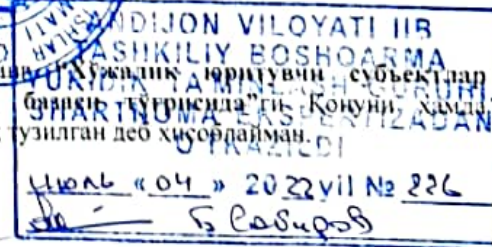 ANDIJON VILOYATI IIB
TASHKILIY BOSHQARMA
YURIDIK TA'MINLASH GURUHI
SHARTNOMA EKSPERTIZADAN
O'TKAZILDI
"Хўжалик юритувчи субъектлар
тўғрисида"ги Қонуни ҳамда
тузилган деб ҳисоблайман.
Июль «04» 2022 yil № 226
Б Собиров